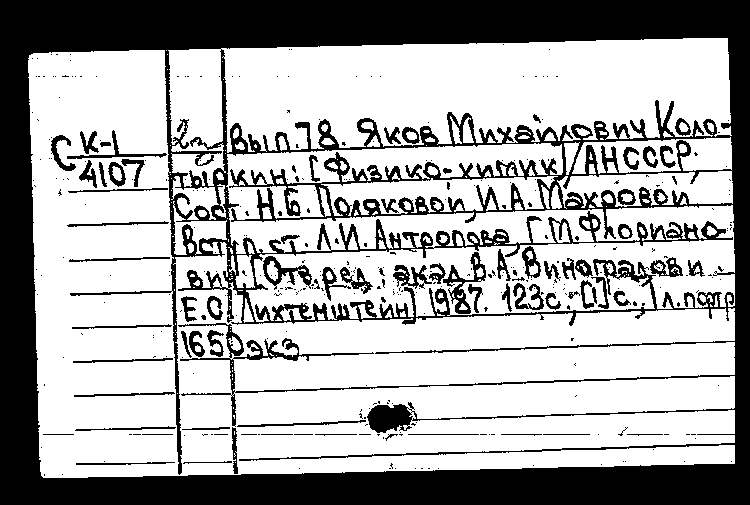 С К-1 2э Вып.78. Яков Михайлович Коло-
4107 тыркин: [Физико-химик] / АНСССР;
Сост. Н.Б. Поляковой, И.А. Махровой
Вступ. ст. Л.И. Антропова, Г.М. Флориано-
вич; [Отв. ред.: акад В.А. Виноградов и
Е.С. Лихтенштейн]. 1987. 123с.; [1]с., 1 л. портр
1650 экз.